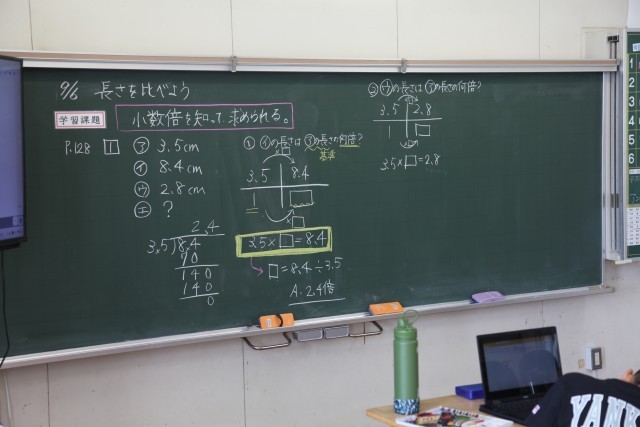 9/6 長さを比べよう
学習課題 小数倍を知って求められる。
P.128 1
㋐ 3.5cm
㋑ 8.4cm
㋒ 2.8cm
㋓ ?
2.4
3.5)8.4
70
140
140
0
① ㋑の長さは㋐の長さの何倍?
基準
3.5 8.4
1 □
□
3.5×□=8.4
□=8.4÷3.5
A.2.4倍
② ㋒の長さは㋐の長さの何倍?
3.5 2.8
1 □
3.5×□=2.8
1
2
3
4
5
6
YANK